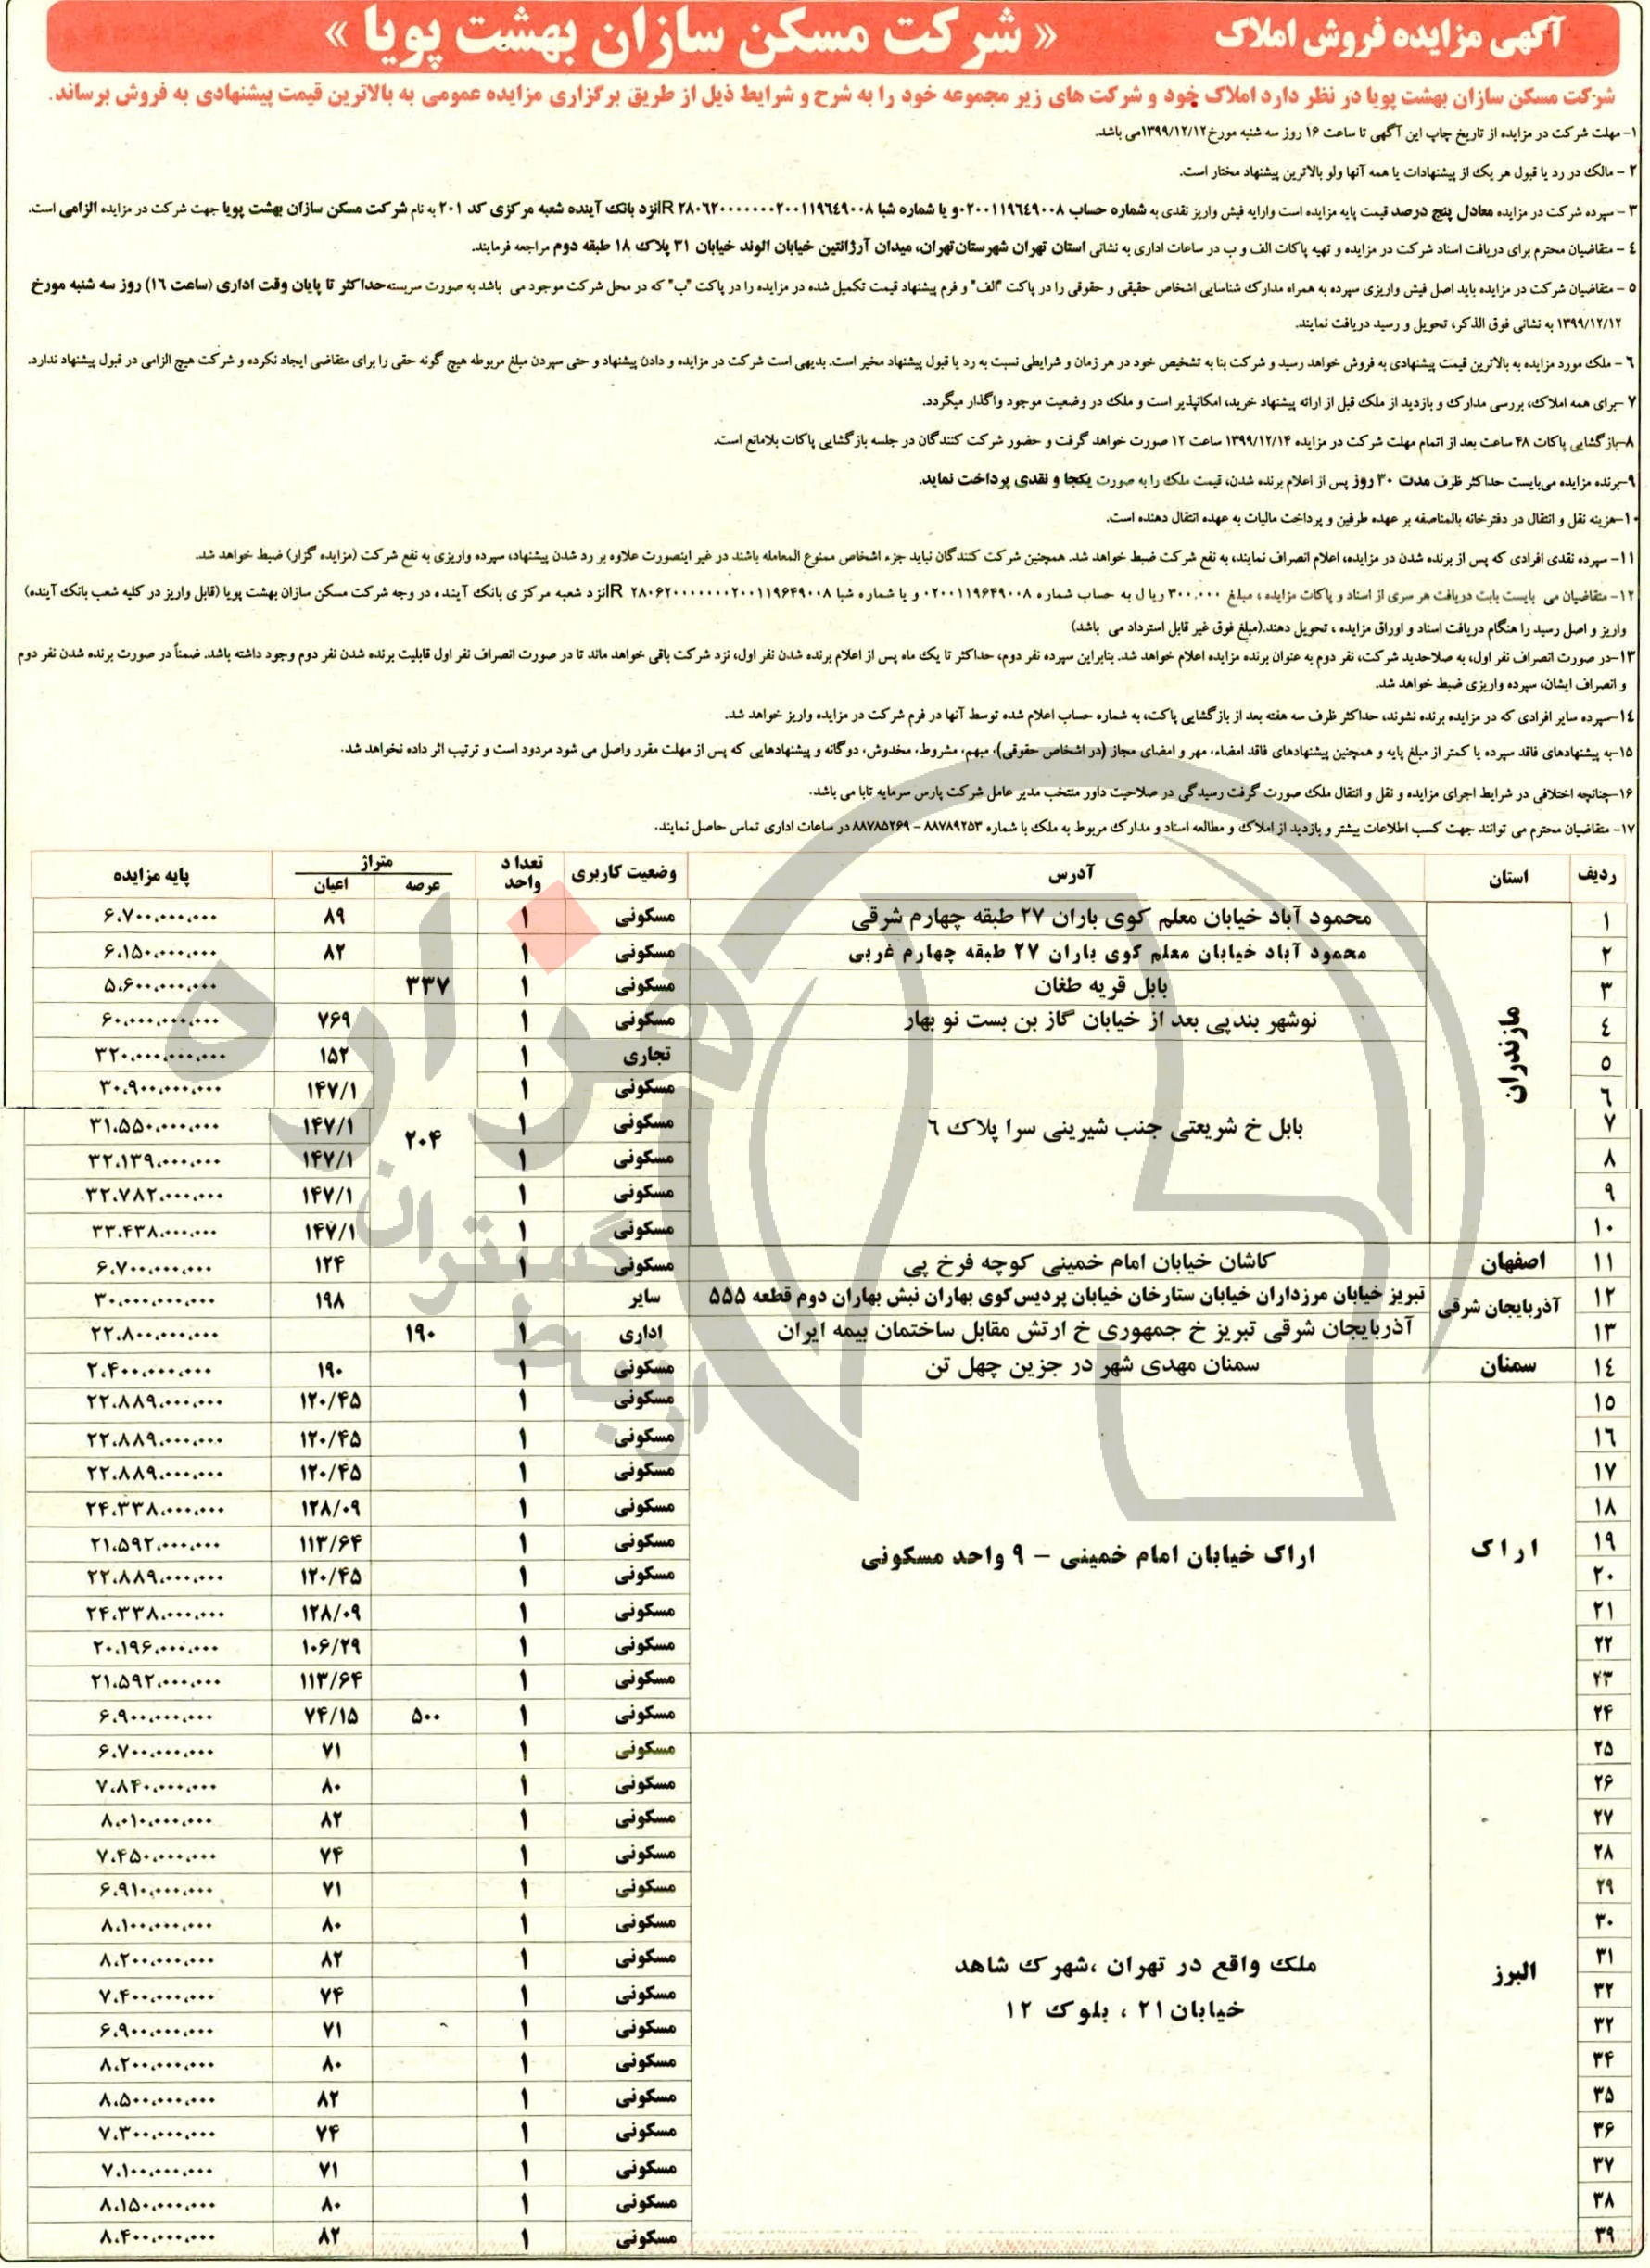 آگهی مزایده فروش املاک « شرکت مسکن سازان بهشت پویا »
شرکت مسکن سازان بهشت پویا در نظر دارد املاک خود و شرکت های زیر مجموعه خود را به شرح و شرایط ذیل از طریق برگزاری مزایده عمومی به بالاترین قیمت پیشنهادی به فروش برساند.
۱- مهلت شرکت در مزایده از تاریخ چاپ این آگهی تا ساعت ۱۶ روز سه شنبه مورخ ۱۳۹۹/۱۲/۱۲می باشد.
۲ - مالک در رد یا قبول هر یک از پیشنهادات یا همه آنها ولو بالاترین پیشنهاد مختار است.
۳ - سپرده شرکت در مزایده معادل پنج درصد قیمت پایه مزایده است وارایه فیش واریز نقدی به شماره حساب ۰۲۰۰۱۱۹۶۴۹۰۰۸و یا شماره شبا IR ۲۸۰۶۲۰۰۰۰۰۰۰۲۰۰۱۱۹۶۴۹۰۰۸نزد بانک آینده شعبه مرکزی کد ۲۰۱ به نام شرکت مسکن سازان بهشت پویا جهت شرکت در مزایده الزامی است.
٤ - متقاضیان محترم برای دریافت اسناد شرکت در مزایده و تهیه پاکات الف و ب در ساعات اداری به نشانی استان تهران شهرستان‌تهران، میدان آرژانتین خیابان الوند خیابان ۳۱ پلاک ۱۸ طبقه دوم مراجعه فرمایند.
۵ - متقاضیان شرکت در مزایده باید اصل فیش واریزی سپرده به همراه مدارک شناسایی اشخاص حقیقی و حقوقی را در پاکت "الف" و فرم پیشنهاد قیمت تکمیل شده در مزایده را در پاکت "ب" که در محل شرکت موجود می باشد به صورت سربسته‌حداکثر تا پایان وقت اداری (ساعت ۱۶) روز سه شنبه مورخ
۱۳۹۹/۱۲/۱۲ به نشانی فوق الذکر، تحویل و رسید دریافت نمایند.
٦ - ملک مورد مزایده به بالاترین قیمت پیشنهادی به فروش خواهد رسید و شرکت بنا به تشخیص خود در هر زمان و شرایطی نسبت به رد یا قبول پیشنهاد مخیر است. بدیهی است شرکت در مزایده و دادن پیشنهاد و حتی سپردن مبلغ مربوطه هیچ گونه حقی را برای متقاضی ایجاد نکرده و شرکت هیچ الزامی در قبول پیشنهاد ندارد.
۷ -برای همه املاک، بررسی مدارک و بازدید از ملک قبل از ارائه پیشنهاد خرید، امکانپذیر است و ملک در وضعیت موجود واگذار میگردد.
۸-بازگشایی پاکات ۴۸ ساعت بعد از اتمام مهلت شرکت در مزایده ۱۳۹۹/۱۲/۱۴ ساعت ۱۲ صورت خواهد گرفت و حضور شرکت کنندگان در جلسه بازگشایی پاکات بلامانع است.
۹-برنده مزایده می‌بایست حداکثر ظرف مدت ۳۰ روز پس از اعلام برنده شدن، قیمت ملک را به صورت یکجا و نقدی پرداخت نماید.
۱۰-هزینه نقل و انتقال در دفترخانه بالمناصفه بر عهده طرفین و پرداخت مالیات به عهده انتقال دهنده است.
۱۱- سپرده نقدی افرادی که پس از برنده شدن در مزایده، اعلام انصراف نمایند، به نفع شرکت ضبط خواهد شد. همچنین شرکت کنندگان نباید جزء اشخاص ممنوع المعامله باشند در غیر اینصورت علاوه بر رد شدن پیشنهاد، سپرده واریزی به نفع شرکت (مزایده گزار) ضبط خواهد شد.
۱۲- متقاضیان می بایست بابت دریافت هر سری از اسناد و پاکات مزایده ، مبلغ ۳۰۰.۰۰۰ ریال به حساب شماره ۰۲۰۰۱۱۹۶۴۹۰۰۸ و یا شماره شبا IR ۲۸۰۶۲۰۰۰۰۰۰۰۲۰۰۱۱۹۶۴۹۰۰۸نزد شعبه مرکزی بانک آینده در وجه شرکت مسکن سازان بهشت پویا (قابل واریز در کلیه شعب بانک آینده)
واریز و اصل رسید را هنگام دریافت اسناد و اوراق مزایده ، تحویل دهند.(مبلغ فوق غیر قابل استرداد می باشد)
۱۳-در صورت انصراف نفر اول، به صلاحدید شرکت، نفر دوم به عنوان برنده مزایده اعلام خواهد شد. بنابراین سپرده نفر دوم، حداکثر تا یک ماه پس از اعلام برنده شدن نفر اول، نزد شرکت باقی خواهد ماند تا در صورت انصراف نفر اول قابلیت برنده شدن نفر دوم وجود داشته باشد. ضمناً در صورت برنده شدن نفر دوم
و انصراف ایشان، سپرده واریزی ضبط خواهد شد.
۱٤-سپرده سایر افرادی که در مزایده برنده نشوند، حداکثر ظرف سه هفته بعد از بازگشایی پاکت، به شماره حساب اعلام شده توسط آنها در فرم شرکت در مزایده واریز خواهد شد.
۱۵-به پیشنهادهای فاقد سپرده یا کمتر از مبلغ پایه و همچنین پیشنهادهای فاقد امضاء، مهر و امضای مجاز (در اشخاص حقوقی)، مبهم، مشروط، مخدوش، دوگانه و پیشنهادهایی که پس از مهلت مقرر واصل می شود مردود است و ترتیب اثر داده نخواهد شد.
۱۶-چنانچه اختلافی در شرایط اجرای مزایده و نقل و انتقال ملک صورت گرفت رسیدگی در صلاحیت داور منتخب مدیر عامل شرکت پارس سرمایه تابا می باشد.
۱۷- متقاضیان محترم می توانند جهت کسب اطلاعات بیشتر و بازدید از املاک و مطالعه اسناد و مدارک مربوط به ملک با شماره ۸۸۷۸۹۲۵۳ - ۸۸۷۸۵۲۶۹ در ساعات اداری تماس حاصل نمایند.
ردیف استان آدرس وضعیت کاربری تعداد واحد متراژ عرصه اعیان پایه مزایده
مازندران
۱ محمود آباد خیابان معلم کوی باران ۲۷ طبقه چهارم شرقی مسکونی ۱ ۸۹ ۶،۷۰۰،۰۰۰،۰۰۰
۲ محمود آباد خیابان معلم کوی باران ۲۷ طبقه چهارم غربی مسکونی ۱ ۸۲ ۶،۱۵۰،۰۰۰،۰۰۰
۳ بابل قریه طغان مسکونی ۱ ۳۳۷ ۵،۶۰۰،۰۰۰،۰۰۰
٤ نوشهر بندپی بعد از خیابان گاز بن بست نو بهار مسکونی ۱ ۷۶۹ ۶۰،۰۰۰،۰۰۰،۰۰۰
۵ تجاری ۱ ۱۵۲ ۳۲۰،۰۰۰،۰۰۰،۰۰۰
٦ مسکونی ۱ ۱۴۷/۱ ۳۰،۹۰۰،۰۰۰،۰۰۰
۷ بابل خ شریعتی جنب شیرینی سرا پلاک ٦ مسکونی ۱ ۲۰۴ ۱۴۷/۱ ۳۱،۵۵۰،۰۰۰،۰۰۰
۸ مسکونی ۱ ۱۴۷/۱ ۳۲،۱۳۹،۰۰۰،۰۰۰
۹ مسکونی ۱ ۱۴۷/۱ ۳۲،۷۸۲،۰۰۰،۰۰۰
۱۰ مسکونی ۱ ۱۴۷/۱ ۳۳،۴۳۸،۰۰۰،۰۰۰
۱۱ اصفهان کاشان خیابان امام خمینی کوچه فرخ پی مسکونی ۱ ۱۲۴ ۶،۷۰۰،۰۰۰،۰۰۰
۱۲ آذربایجان شرقی تبریز خیابان مرزداران خیابان ستارخان خیابان پردیس‌کوی بهاران نبش بهاران دوم قطعه ۵۵۵ سایر ۱ ۱۹۸ ۳۰،۰۰۰،۰۰۰،۰۰۰
۱۳ آذربایجان شرقی تبریز خ جمهوری خ ارتش مقابل ساختمان بیمه ایران اداری ۱ ۱۹۰ ۲۲،۸۰۰،۰۰۰،۰۰۰
۱٤ سمنان سمنان مهدی شهر در جزین چهل تن مسکونی ۱ ۱۹۰ ۲،۴۰۰،۰۰۰،۰۰۰
۱۵ مسکونی ۱ ۱۲۰/۴۵ ۲۲،۸۸۹،۰۰۰،۰۰۰
۱٦ مسکونی ۱ ۱۲۰/۴۵ ۲۲،۸۸۹،۰۰۰،۰۰۰
۱۷ مسکونی ۱ ۱۲۰/۴۵ ۲۲،۸۸۹،۰۰۰،۰۰۰
۱۸ مسکونی ۱ ۱۲۸/۰۹ ۲۴،۳۳۸،۰۰۰،۰۰۰
۱۹ اراک اراک خیابان امام خمینی - ۹ واحد مسکونی مسکونی ۱ ۱۱۳/۶۴ ۲۱،۵۹۲،۰۰۰،۰۰۰
۲۰ مسکونی ۱ ۱۲۰/۴۵ ۲۲،۸۸۹،۰۰۰،۰۰۰
۲۱ مسکونی ۱ ۱۲۸/۰۹ ۲۴،۳۳۸،۰۰۰،۰۰۰
۲۲ مسکونی ۱ ۱۰۶/۲۹ ۲۰،۱۹۶،۰۰۰،۰۰۰
۲۳ مسکونی ۱ ۱۱۳/۶۴ ۲۱،۵۹۲،۰۰۰،۰۰۰
۲۴ مسکونی ۱ ۵۰۰ ۷۴/۱۵ ۶،۹۰۰،۰۰۰،۰۰۰
۲۵ مسکونی ۱ ۷۱ ۶،۷۰۰،۰۰۰،۰۰۰
۲۶ مسکونی ۱ ۸۰ ۷،۸۴۰،۰۰۰،۰۰۰
۲۷ مسکونی ۱ ۸۲ ۸،۰۱۰،۰۰۰،۰۰۰
۲۸ مسکونی ۱ ۷۴ ۷،۴۵۰،۰۰۰،۰۰۰
۲۹ مسکونی ۱ ۷۱ ۶،۹۱۰،۰۰۰،۰۰۰
۳۰ مسکونی ۱ ۸۰ ۸،۱۰۰،۰۰۰،۰۰۰
۳۱ البرز ملک واقع در تهران ،شهرک شاهد مسکونی ۱ ۸۲ ۸،۲۰۰،۰۰۰،۰۰۰
۳۲ خیابان۲۱ ، بلوک ۱۲ مسکونی ۱ ۷۴ ۷،۴۰۰،۰۰۰،۰۰۰
۳۲ مسکونی ۱ ۷۱ ۶،۹۰۰،۰۰۰،۰۰۰
۳۴ مسکونی ۱ ۸۰ ۸،۲۰۰،۰۰۰،۰۰۰
۳۵ مسکونی ۱ ۸۲ ۸،۵۰۰،۰۰۰،۰۰۰
۳۶ مسکونی ۱ ۷۴ ۷،۳۰۰،۰۰۰،۰۰۰
۳۷ مسکونی ۱ ۷۱ ۷،۱۰۰،۰۰۰،۰۰۰
۳۸ مسکونی ۱ ۸۰ ۸،۱۵۰،۰۰۰،۰۰۰
۳۹ مسکونی ۱ ۸۲ ۸،۴۰۰،۰۰۰،۰۰۰
هزاره
ارتباط گستران